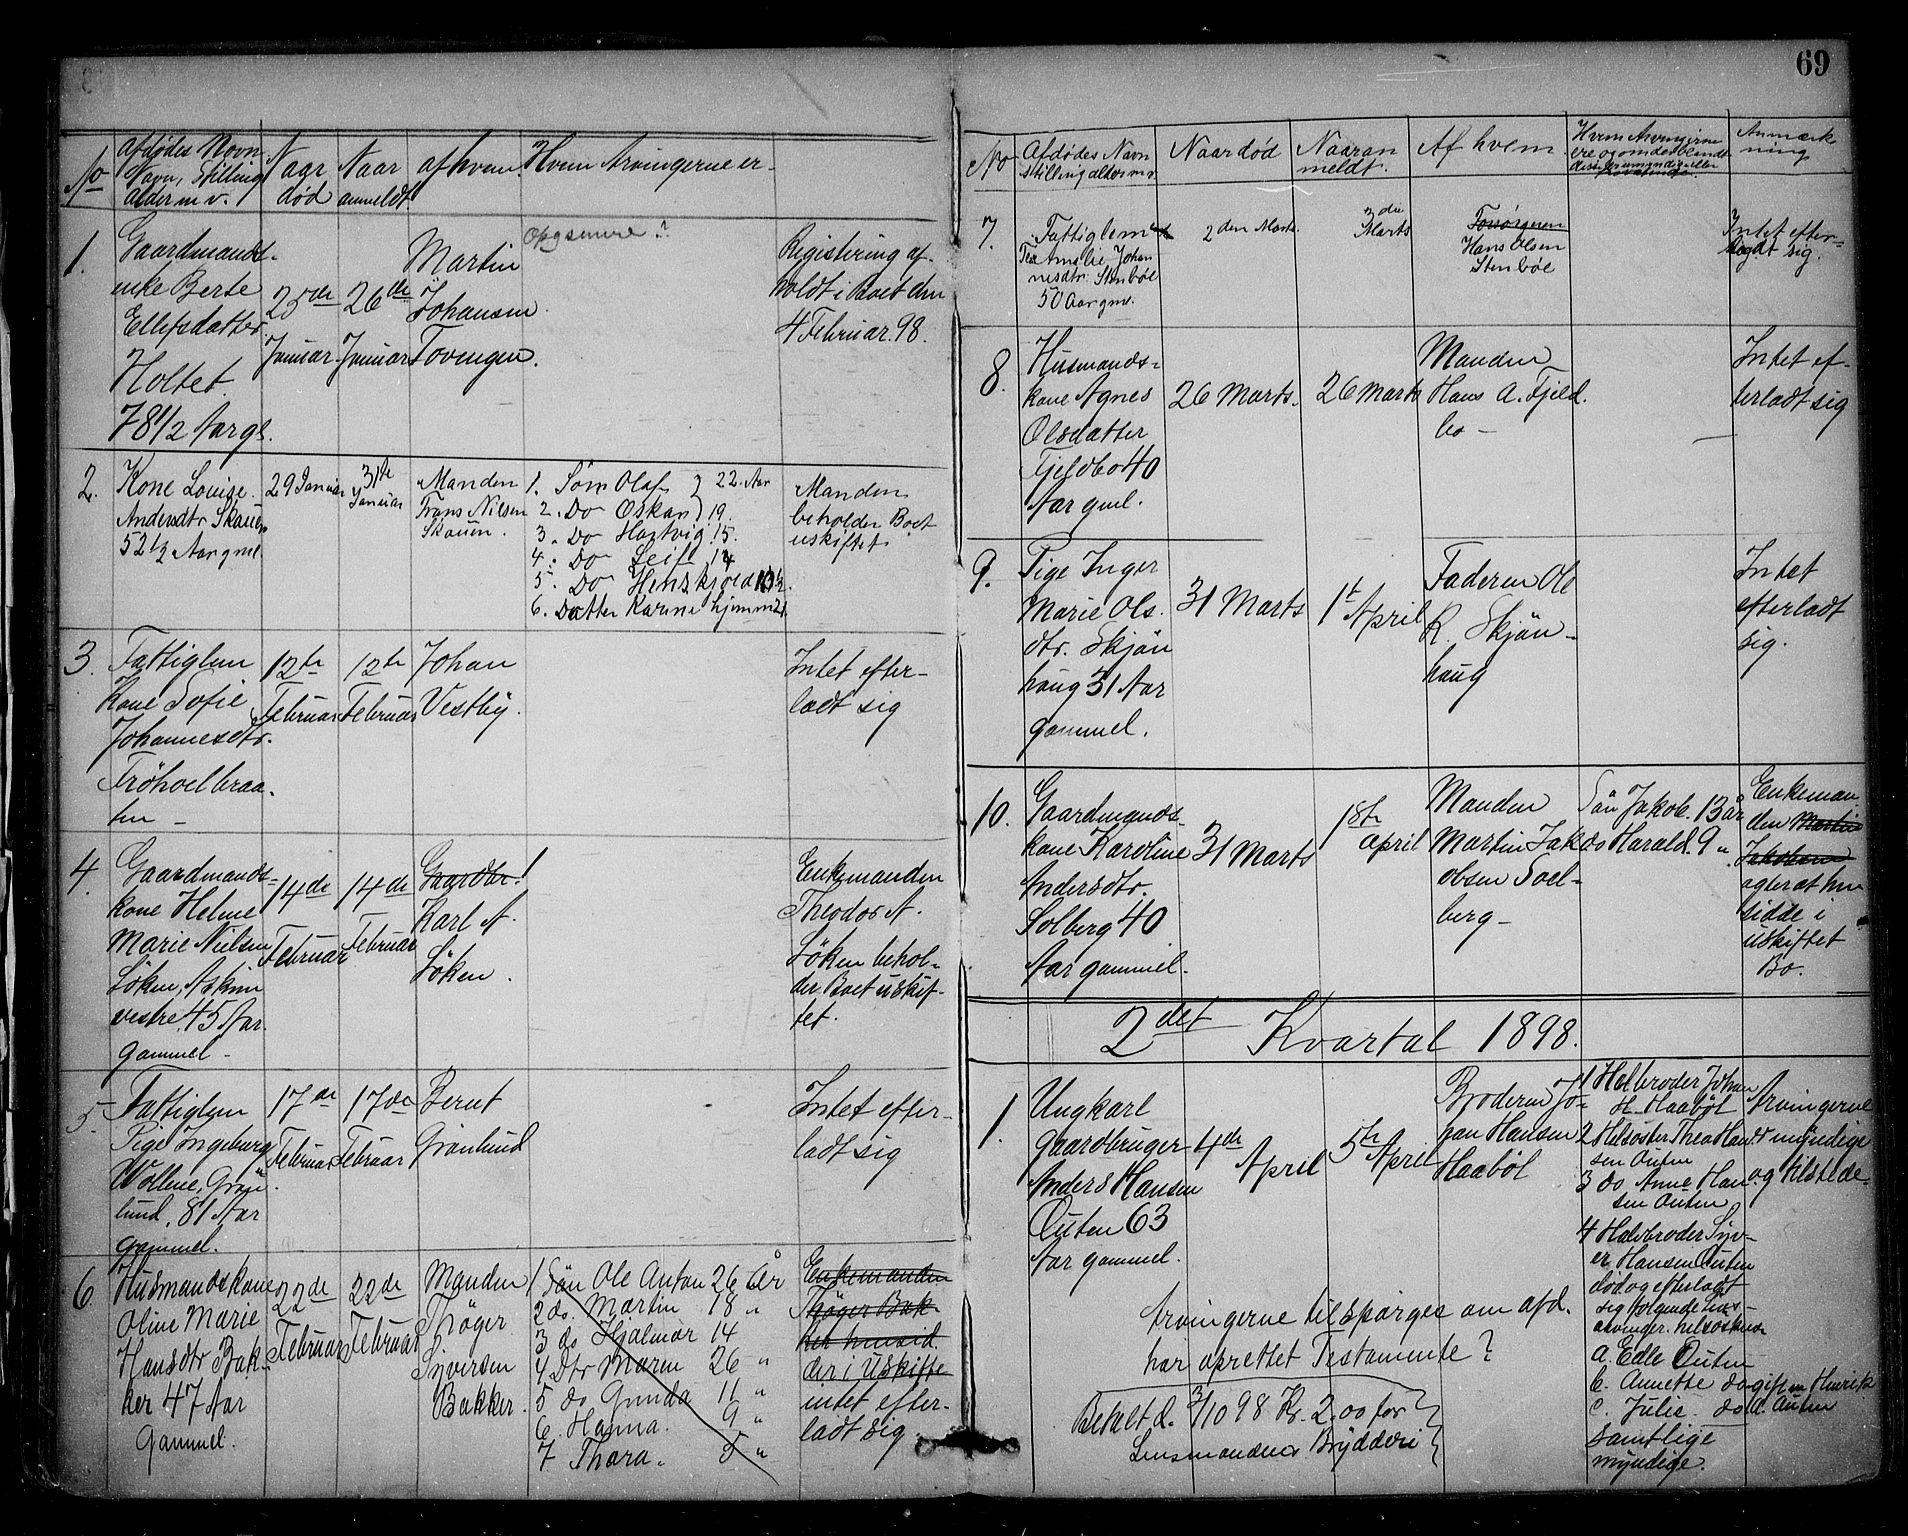 69
No
Afdødes Navn
Navn, Stilling
alder m v.
Naar
død
Naar
anmeldt.
af hvem
Hvem Arvingerne er
1.
Gaardmands-
enke Berte
Ellefsdatter
Holtet
78 1/2 Aar gl.
25de
Januar
26de
Januar
Martin
Johansen
Tovengen.
Registering af-
holdt i Boet den
4 Februar. 98.
2.
Kone Louise
Andersdtr Skauen
52 1/2 Aar gml
29 Januar
31te
Januar
Manden
Frans Nilsen
Skauen.
1. Søn Olaf 22. Aar
2. Do Oskar 19.
3. Do Hartvig 15.
4. Do Leif 14
5. Do
6. Datter Karine hjemme
Manden
beholder Boet
uskiftet
3.
Fattiglem
Kone Sofie
Johannesdtr.
Trøhoelbraa-
ten -
12te
Februar
12te
Februar
Johan
Vestby.
Intet efter-
ladt sig
4.
Gaardmands-
kone Helene
Marie Nielsen
Løken, Askim
vestre, 45 Aar
gammel -
14de
Februar
14de
Februar
Gaardbr.
Karl A.
Løken.
Enkemanden
Theodor A.
Løken behol-
der Boet uskif-
tet.
5.
Fattiglem
Pige Ingeborg
Wollene, Grøn-
lund, 81 Aar
gammel.
17de
Februar
17de
Februar
Bernt
Grønlund
Intet efter-
ladt sig
6.
Husmandskone
Oline Marie
Hansdtr Bak-
ker 47 Aar
Gammel.
22de
Februar
22de
Februar
Manden
Thøger
Syversen
Bakker.
1 Søn Ole Anton 26 År
2 do. Martin 18 "
3 do Hjalmar 14
4 Dtr Maren 26 "
5 do Gunda 11 "
6 Hanna. 9 "
7 Thora. 5 "
Enkemanden
Thøger Bak-
ker hensid-
der i Uskifte
intet efter-
ladt sig
No
Afdødes Navn
stilling alder m v
Naar død
Naar an
meldt.
Af hvem
Anmærk
ning
7.
Fattiglem
Thea Amalie Johan
nesdtr. Stenbøl
50 Aar gml.
2den Marts.
3die
Marts
Forsørgeren
Hans Olsen
Stenbøl
Intet efter-
ladt sig.
8.
Husmands-
kone Agnes
Olsdatter
Fjeldbo 40
Aar gml.
26 Marts.
26 Marts
Manden
Hans A. Fjeld.
bo -
Intet ef-
terladt sig
9.
Pige Inger
Marie Ols.
dtr. Skjøn
haug 31 Aar
gammel.
31 Marts
1t April
Faderen Ole
R. Skjøn-
haug
Intet
efterladt
sig.
10.
Gaardmands-
kone Karoline
Andersdtr.
Solberg 40
Aar gammel.
31 Marts
18te
april
Manden
Martin Jak
obsen Soel-
berg -
Søn Jakob. 13 år
do Harald. 9 "
Enkeman-
den Martin
Jakobsen
agter at hen
sidde i
uskiftet
Bo.
2det Kvartal 1898.
1.
Ungkarl
gaardbruger
Anders Hansen
Outen 63
Aar gammel.
4de
April
5te
April
Broderen Jo-
han Hansen
Haabøl
1 Helbroder Johan
H. Haabøl
2 Helsøster Thea Han-
sen Outen
3 do Anne Han-
sen Outen
4 Halvbroder Syv-
er Hansen Outen
død og efterladt
sig følgende Livs-
arvinger. helsøskende
a. Edle Outen
b. Annette do gift m Henrik
c. Julie. do A. Outen
samtlige
myndige.
Arvingerne
er myndige
og tilstede.
Arvingerne tilspørges om afd.
har oprettet Testamente?
Betalt d. 3/10 98 Kr. 2.00 for
Lensmandens Bryderi